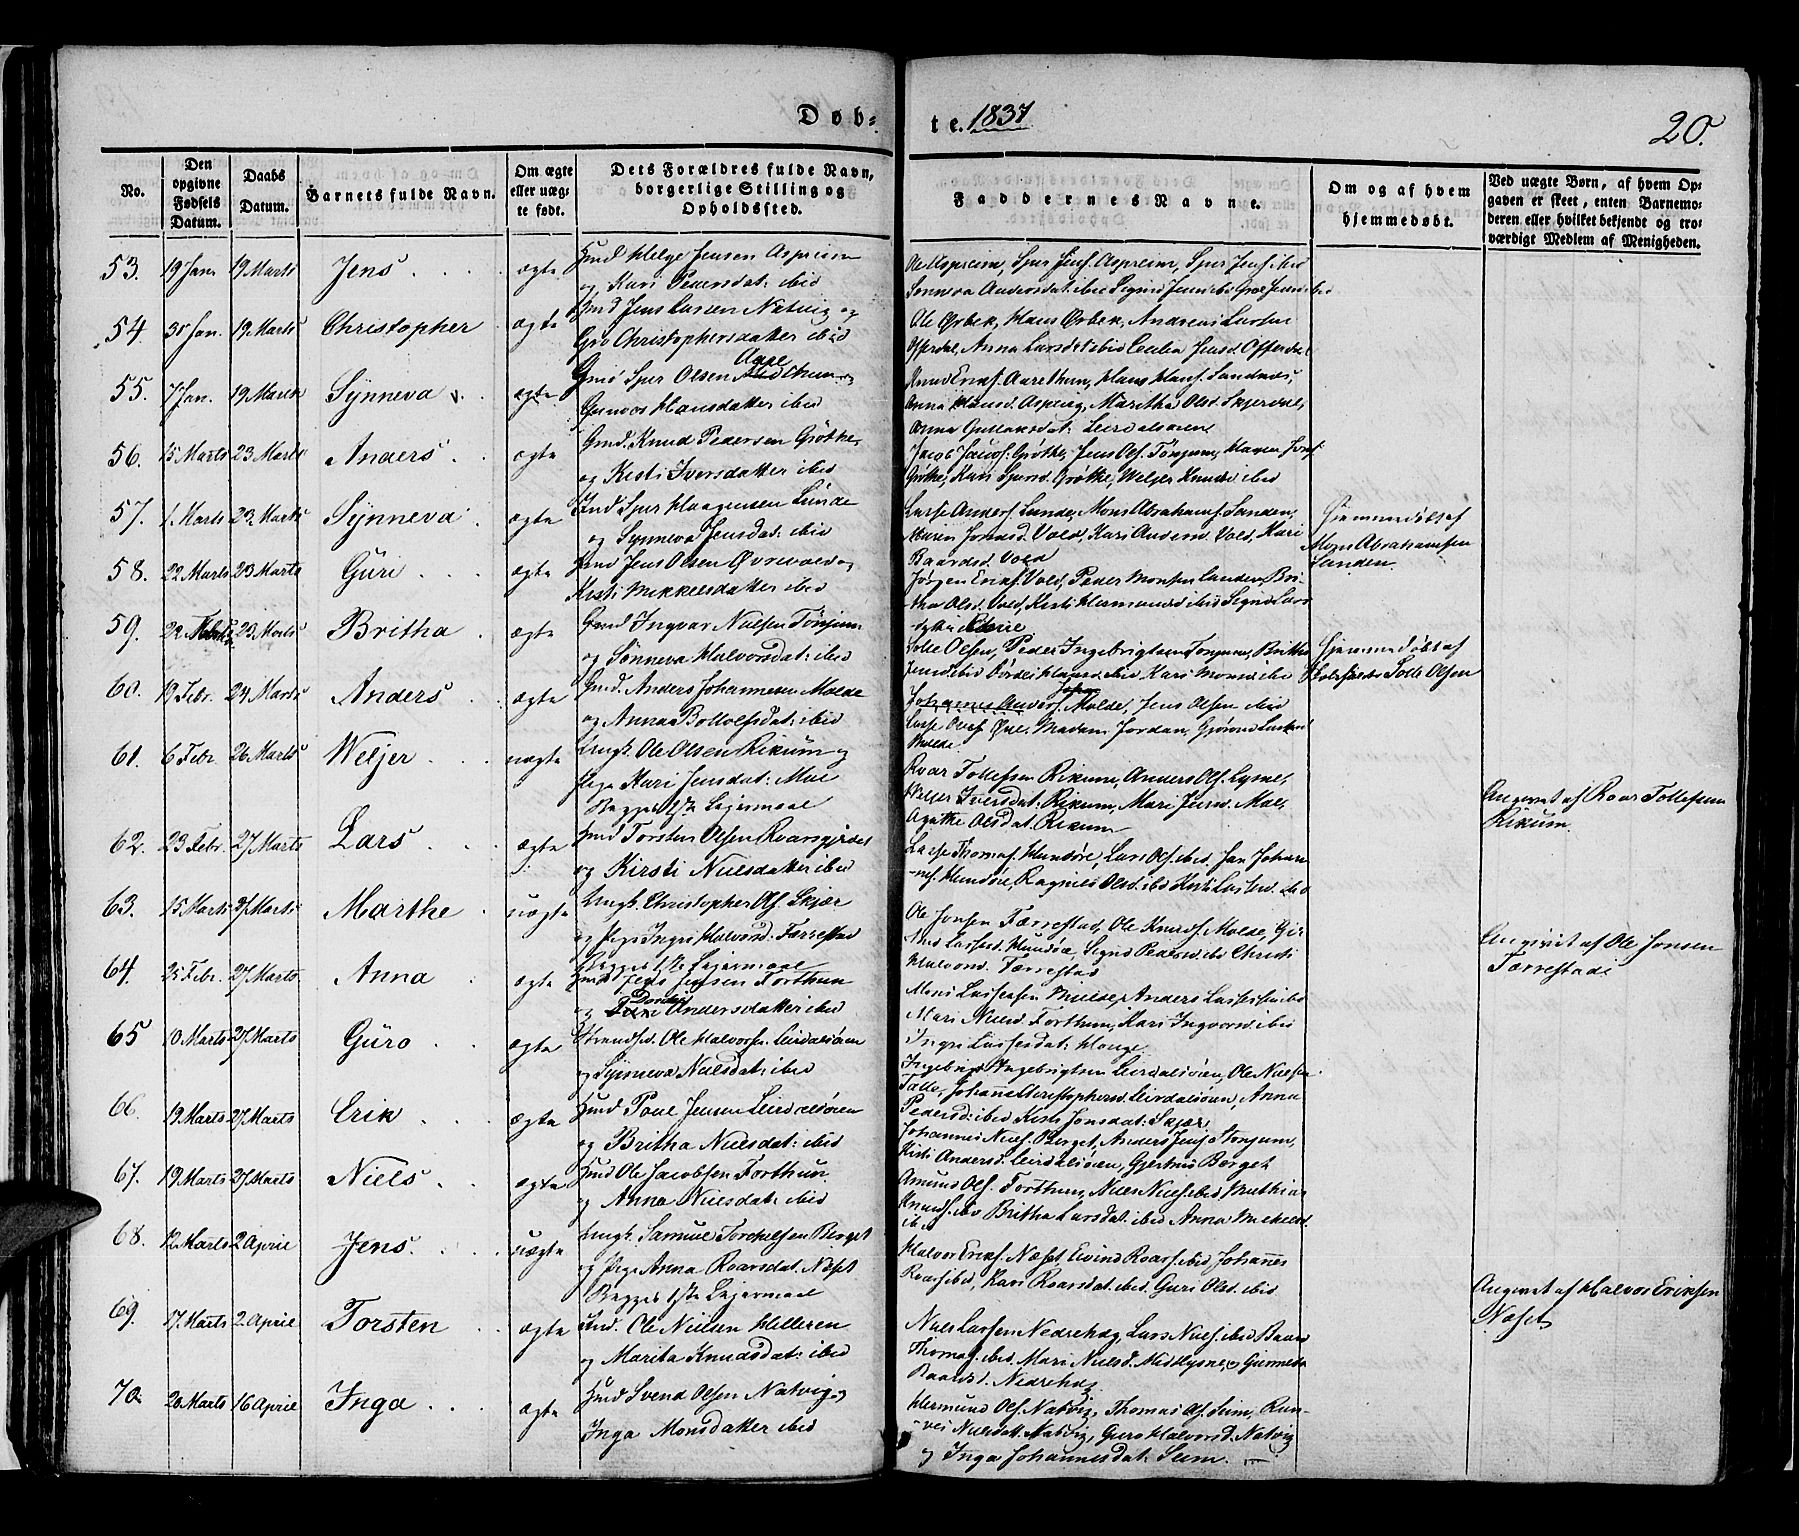 Døb-
te. 1837
20.
No.
Den opgivne Fødsels Datum.
Daabs Datum.
Barnets fulde Navn.
Om ægte eller uæg-te født.
Dets Forældres fulde Navn, borgerlige Stilling og Opholdssted.
Faddernes Navne.
Om og af hvem hjemmedøbt.
Ved uægte Børn, af hvem Op-gaven er skeet, enten Barnemo-deren eller hvilket bekjendt og tro-værdigt Medlem af Menigheden.
53. 19 Jan. 19 Marts Jens ægte
Helge Jensen Aspreim
og Kari Pedersdat: ibid
Ole Aspreim, Sjur Jens. Aspreim, Sjur Jens. ibid
Sønneva Andersdat: ibid
54. 30 Jan. 19 Marts Christopher ægte
Jens Larsen Natvig og
Gro Christophersdatter ibid
Ole Ørbek, Hans Ørbek, Andreas Larsen
Offerdal, Anna Larsdat: ibid Cecilia Jensd. Offerdal
55. 7 Jan. 19 Marts Synneva ægte
Sjur Olsen
Hansdatter ibid
Knud Eriks. Aarethun, Hans Hans. Sandnes,
Anna Hansd. Maritha Olsd. Skjerdal,
Anna Leirdalsøren
56. 15 Marts 23 Marts Anders ægte
Gmd. Knud Pedersen Grøthe
og Kirsti Iversdatter ibid
Jens Ols. Tønjum,
Grøthe, Kari Sjursd. Grøthe, Weljer Knudsd ibid
57. 1 Marts 23 Marts Synneva ægte
Sjur Haagensen Lunde
og Synneva Jensdat: ibid
Lasse Anders. Lunde, Mons Abrahams. Sanden,
Karen Jonsd. Vold, Kari Andersd. Vold, Kari
Baardsd. Vold
Hjemmedøbt af
Mons Abrahamsen
Sanden.
58. 22 Marts 23 Marts Guri ægte
Jens Olsen
Kirsti Mikkelsdatter ibid
Jørgen Eriks. Vold, Peder Monsen Sanden, Bri-
tha Olsd. Vold, Kirsti Hermundsd ibid
59. 22 23 Marts Britha ægte
Ingvar Nielsen Tønjum
og Sønneva Halvorsdat: ibid
Tolle Olsen, Peder Ingebrigtsen Tønjum, Britha
Jensd. ibid Kari Monsd ibid
Hjemmedøbt af
Tolle Olsen
60. 19 Febr. 24 Marts Anders ægte
Gmd. Anders Johannesen Molde
og Anna Bottolfsdat: ibid
Johannes Anders. Molde, Jens Olsen ibid
Lasse Madam Jordan,
Molde
61. 6 Febr. 26 Marts Weljer uægte
Ungk. Ole Olsen Rikum og
Pige Kari Jensdat: Moe
Begges 1ste Lejermaal
Roar Tollefsen Rikum, Anders Ols. Lysne,
Weljer Iversdat: Rikum, Mari Jensd. Moe,
Agathe Olsdat: Rikum
Angivet af Roar Tollefsen
Rikum.
62. 23 Febr. 27 Marts Lars ægte
Torsten Olsen Roarsgjerdet
og Kirsti Nielsdatter ibid
Lasse Thomas. Hundøre, Lars Ols. ibid, Jan Johan-
nes. Hundøre, Ragnild Olsd. ibid Kirsti Larsd. ibid
63. 15 Marts 27 Marts Marthe uægte
Ungk. Christopher Ols. Skjær
og Pige Ingri Halvorsd. Færrestad
Begges 1ste Lejermaal
Ole Jonsen Færrestad, Ole Knuds. Molde,
Halvorsd. Færrestad
Angivet af Ole Jonsen
Færrestad
64. 25 Febr. 27 Marts Anna ægte
Jens Jensen Forthun
og Dordei Andersdatter ibid
Anders Lassesen ibid
Mari Nielsd. Forthun, Kari Ingvorsd ibid
Ingri Lassesdat: Houge
65 10 Marts 27 Marts Guro ægte
Strandsd. Ole Halvorsen Leirdalsøren
og Synneva Nielsdat: ibid
Ingebrigt Ingebrigtsen Leirdalsøren, Ole Nielsen
Johanne Christophersd. Leirdalsøren, Anna
Pedersd: ibid Kirsti Jonsdat: Skjær
66. 19 Marts 27 Marts Erik ægte
Poul Jensen Leirdalsøren
og Britha Nielsdat: ibid
Johannes Niels. Berget, Anders Jens. Tønjum,
Kirsti Andersd. Leirdalsøren, Gjertrud Berget
67. 19 Marts 27 Marts Niels ægte
Ole Jacobsen Forthun
og Anna Nielsdat: ibid
Amund Ols. Forthun, Niels Niels. ibid Mathias
Knuds. ibid Britha Larsdat: ibid Anna Mikkelsd.
ibid
68. 12 Marts 2 April Jens uægte
Ungk. Samuel Torchelsen Berget
og Pige Anna Roarsdat: Næset
Begges 1ste Lejermaal
Halvor Eriks. Næset, Eivind Roars. ibid Johannes
Roars. ibid, Kari Roarsdat: ibid, Guri Olsd. ibid
Angivet af Halvor Eriksen
Næset
69. 17 Marts 2 April Torsten ægte
Ole Nielsen Helleren
og Marita Knudsdat: ibid
Niels Larsen Nedrehæg, Lars Niels. ibid Baard
Thomas. ibid, Mari Nielsd. Midlysne, Gunnilda
Baardsd. Nedrehæg
70. 20 Marts 16 April Inga ægte
Svend Olsen Natvig og
Inga Monsdatter ibid
Hermund Ols. Natvig, Thomas Ols. Seim, Ran-
vei Nielsdat: Natvig, Guro Halvorsd. Natvig
og Inga Johannesdat: Seim.